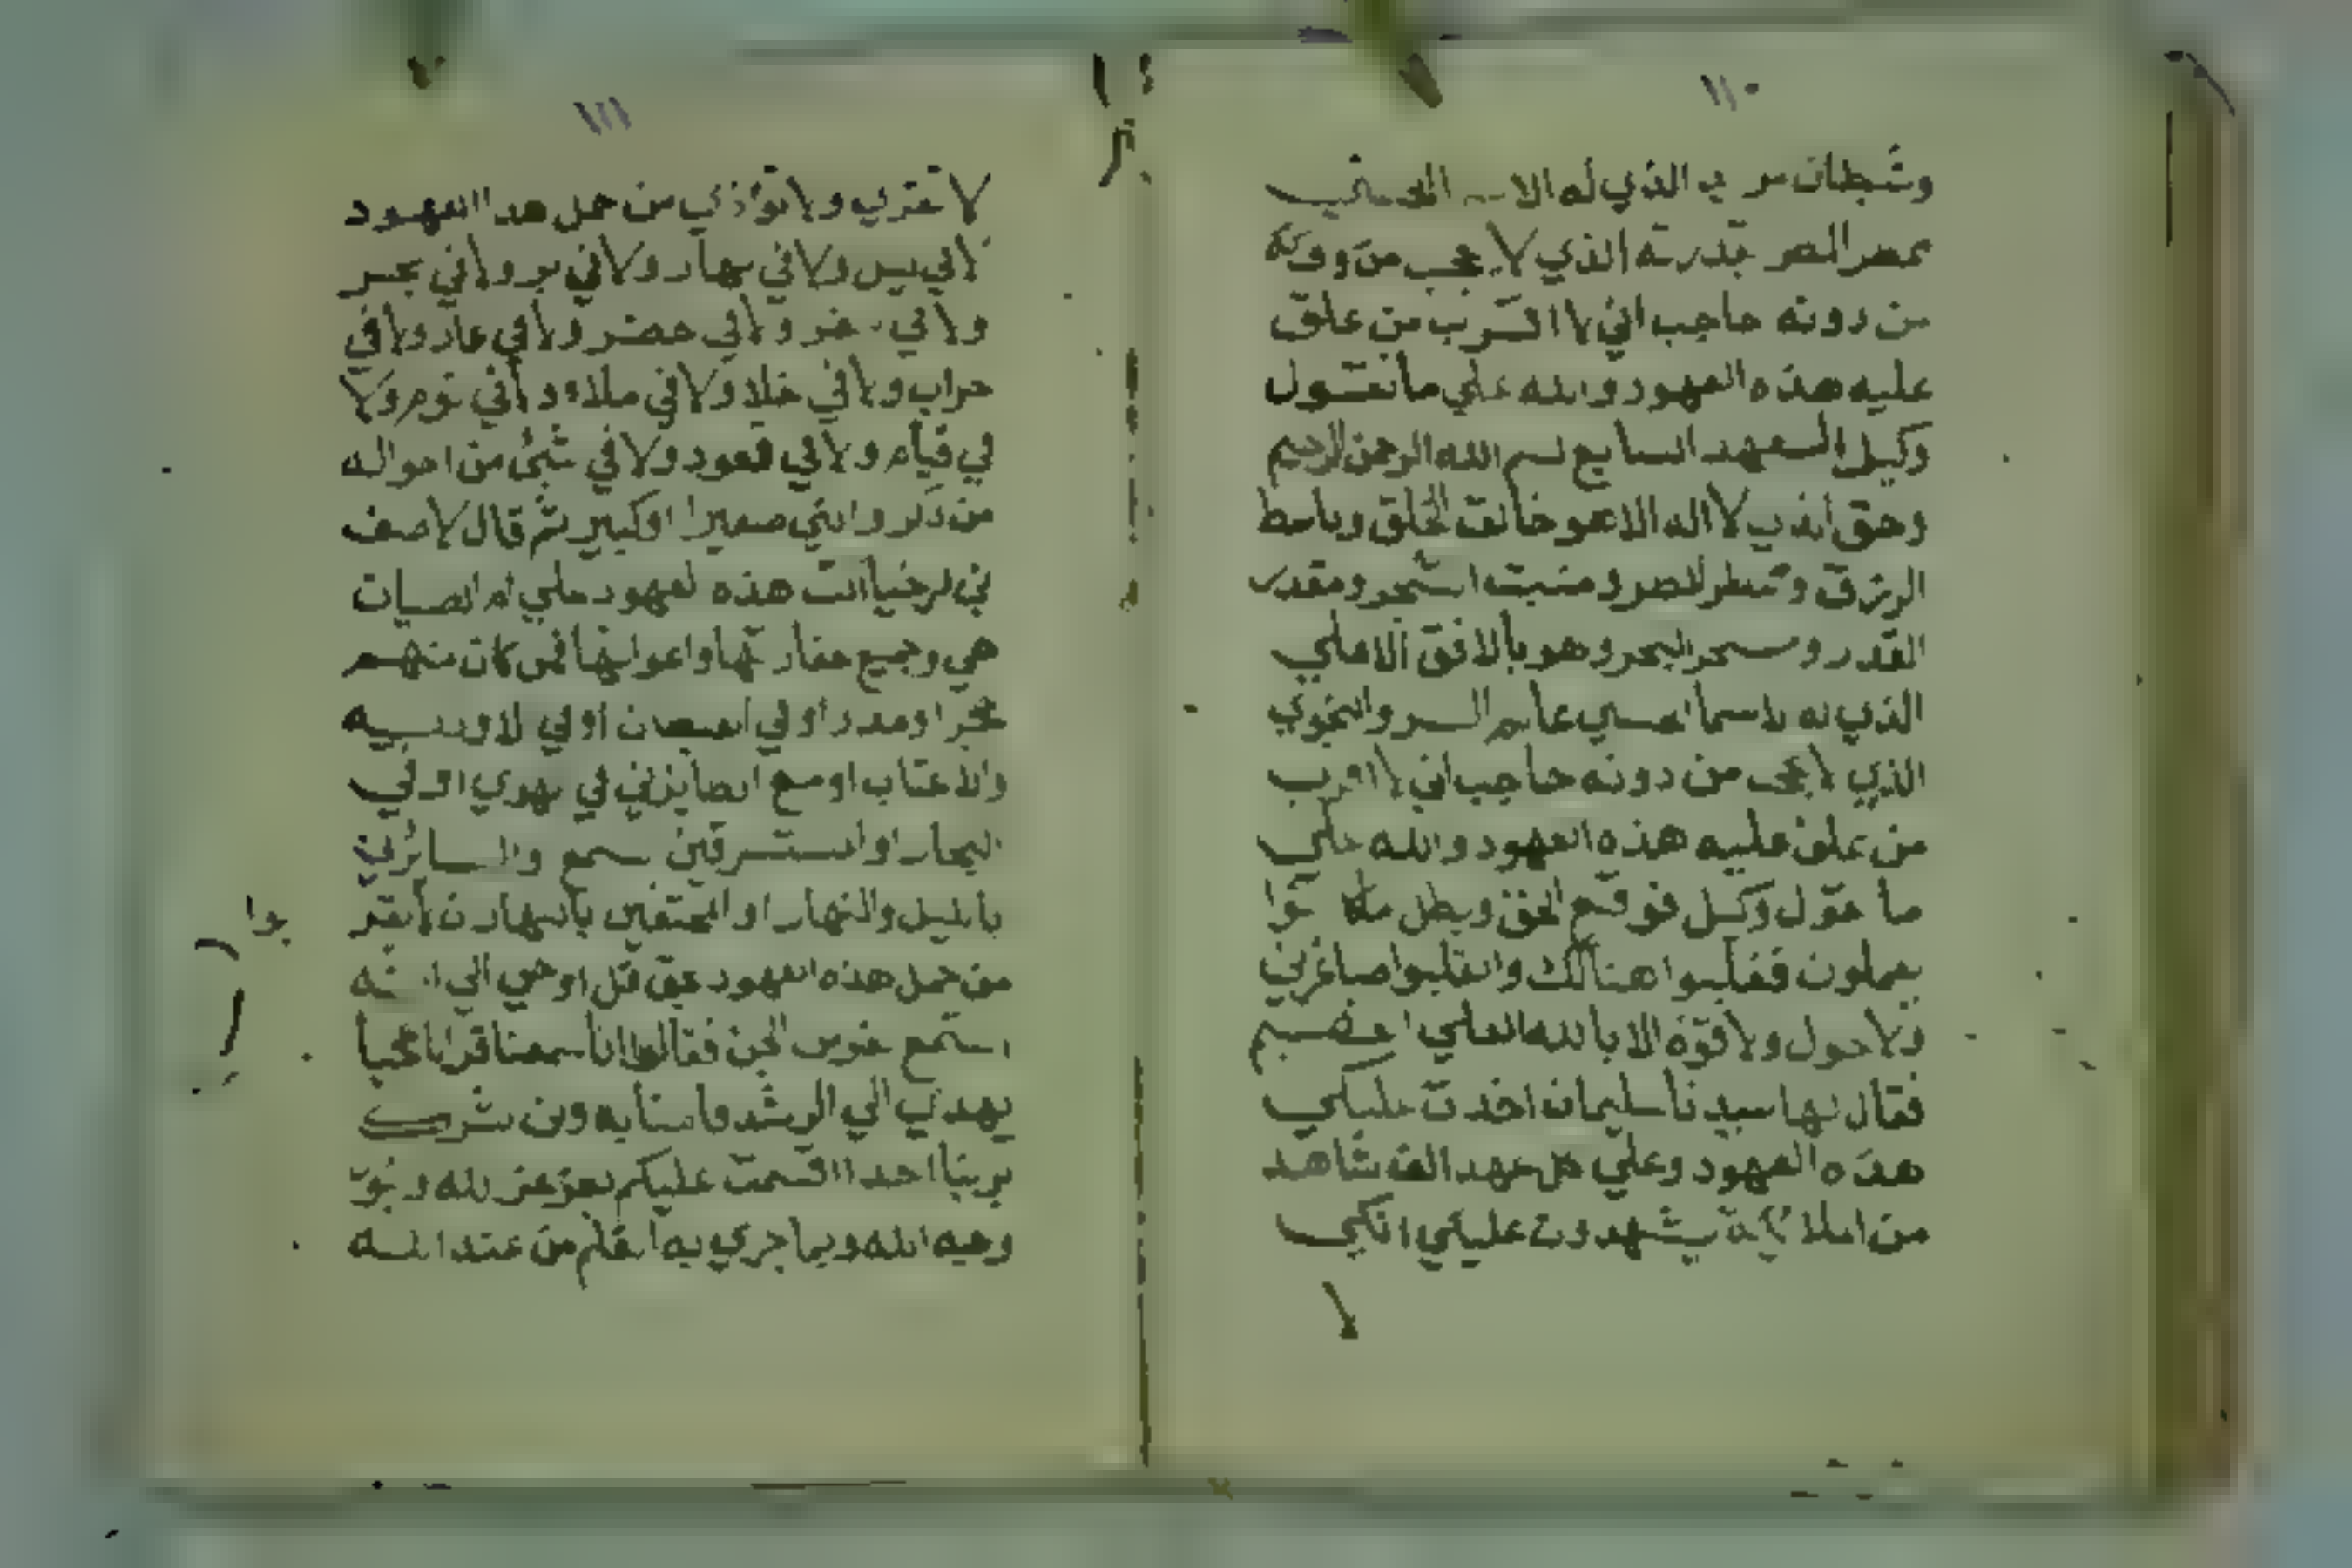 ١١٠
وشيطان مريد الذي له الاسماء الحسنى
من دونه حاجب اني لا اقرب من علق
عليه هذه العهود والله علي ما نقول
وكيل العهد السابع بسم الله الرحمن الرحيم
وحق الذي لا اله الا هو خالق الخلق وباسط
الرزق و ومنبت الشجر ومقدر
القدر ومسخر البحر وهو بالافق الاعلي
الذي له الاسما الحسني عالم السر والنجوي
الذي لا يحجب من دونه حاجب اني لا اقرب
من علق عليه هذه العهود والله علي
ما نقول وكيل فوقع الحق وبطل ما كانوا
يعملون فغلبوا هنالك وانقلبوا صاغرين
ولا حول ولا قوة الا بالله العلي العظيم
فقال لها سيدنا سليمان اخذت عليكي
هذه العهود وعلي كل عهد الف شاهد
من الملائكة يشهدون عليكي انكي
لا
١١١
لا تقربي ولا تؤذي من حمل هذا العهود
لا في ليل ولا في نهار ولا في بر ولا في بحر
ولا في سفر ولا في حضر ولا في عمار ولا في
خراب ولا في خلاء ولا في ملاء ولا في نوم ولا
في قيام ولا في قعود ولا في شيء من احواله
من ذكر وانثي صغيرا او كبير ثم قال لاصف
بن برخيا انت هذه العهود علي ام الصبيان
هي وجميع واعوانها فمن كان منهم
او في
او في
البحار او المسترقين سمع والسائرين
بالليل والنهار او بالنهار ان لا يقربوا
من حمل هذه العهود بحق قل اوحي الي انه
استمع نفر من الجن فقالوا انا سمعنا قرانا عجبا
يهدي الي الرشد فامنا به ولن نشرك
بربنا احدا اقسمت عليكم بعز عز الله و
وجه الله وبما جري به القلم من عند الله